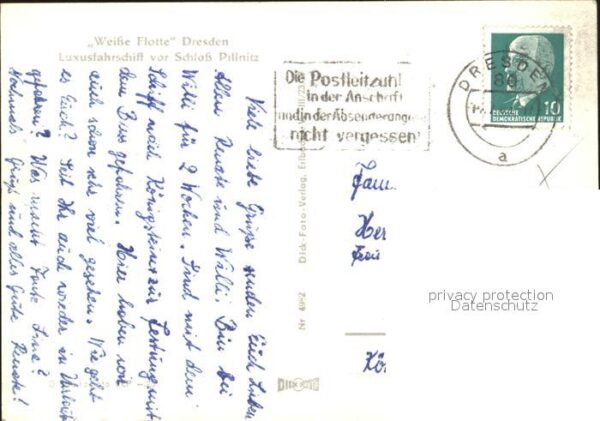 „Weiße Flotte" Dresden
Luxusfahrschiff vor Schloß Pillnitz
Viel liebe Grüße senden Euch Lieben
Allen Renate und Willi. Bin bei
Willi für 2 Wochen. Sind mit dem
Schiff nach Königstein zur Festung mit
dem Bus gefahren. Hier haben wir
auch schon sehr viel gesehen. Wie geht
es Euch? Seid Ihr auch wieder in Urlaub
gefahren? Was macht Tante
Nochmals Grüße und alles Gute Renate!
Die Postleitzahl
in der Anschrift
und in der Absenderangabe
nicht vergessen
DRESDEN
80
a
10
DEUTSCHE
DEMOKRATISCHE REPUBLIK
Dick-Foto-Verlag,
Nr 4962
DICK
Fam.
Her
privacy protection
Datenschutz